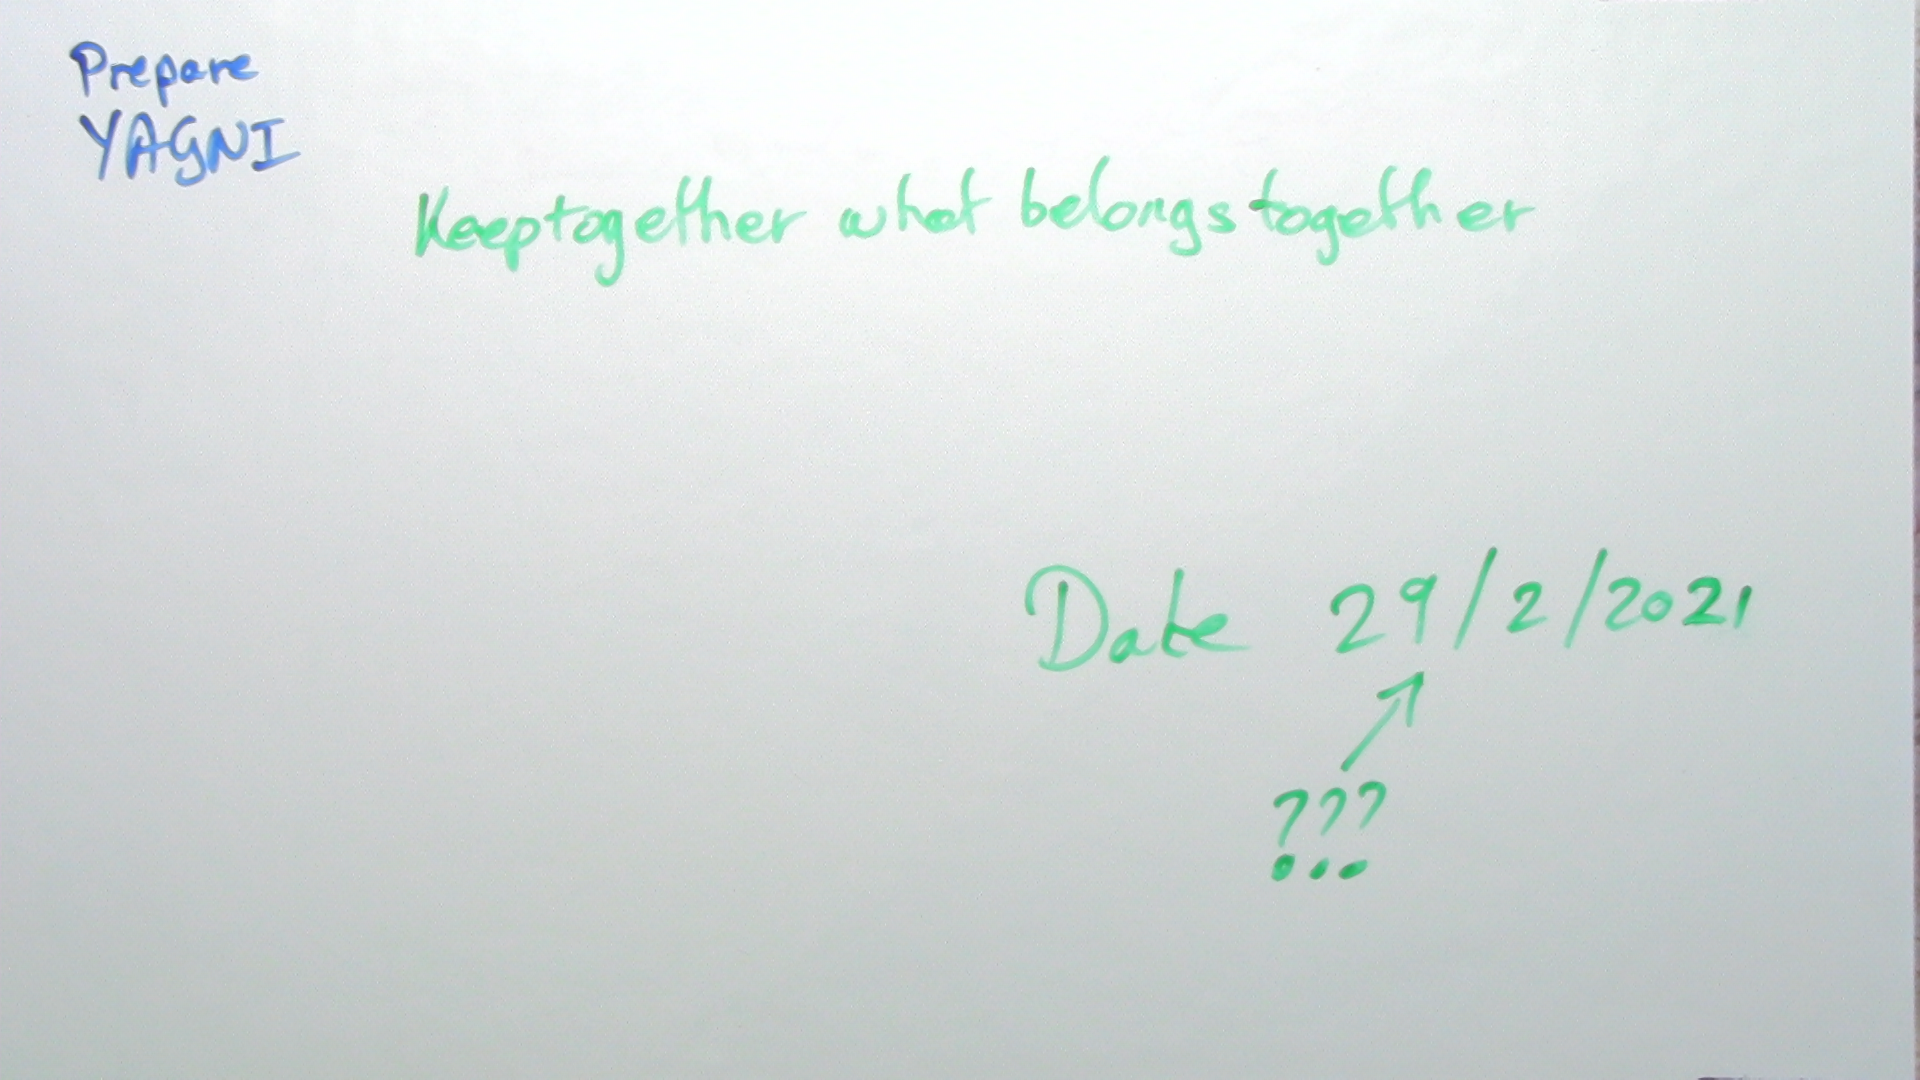 Prepare
YAGNI
Keep together what belongs together
Date 29/2/2021
???